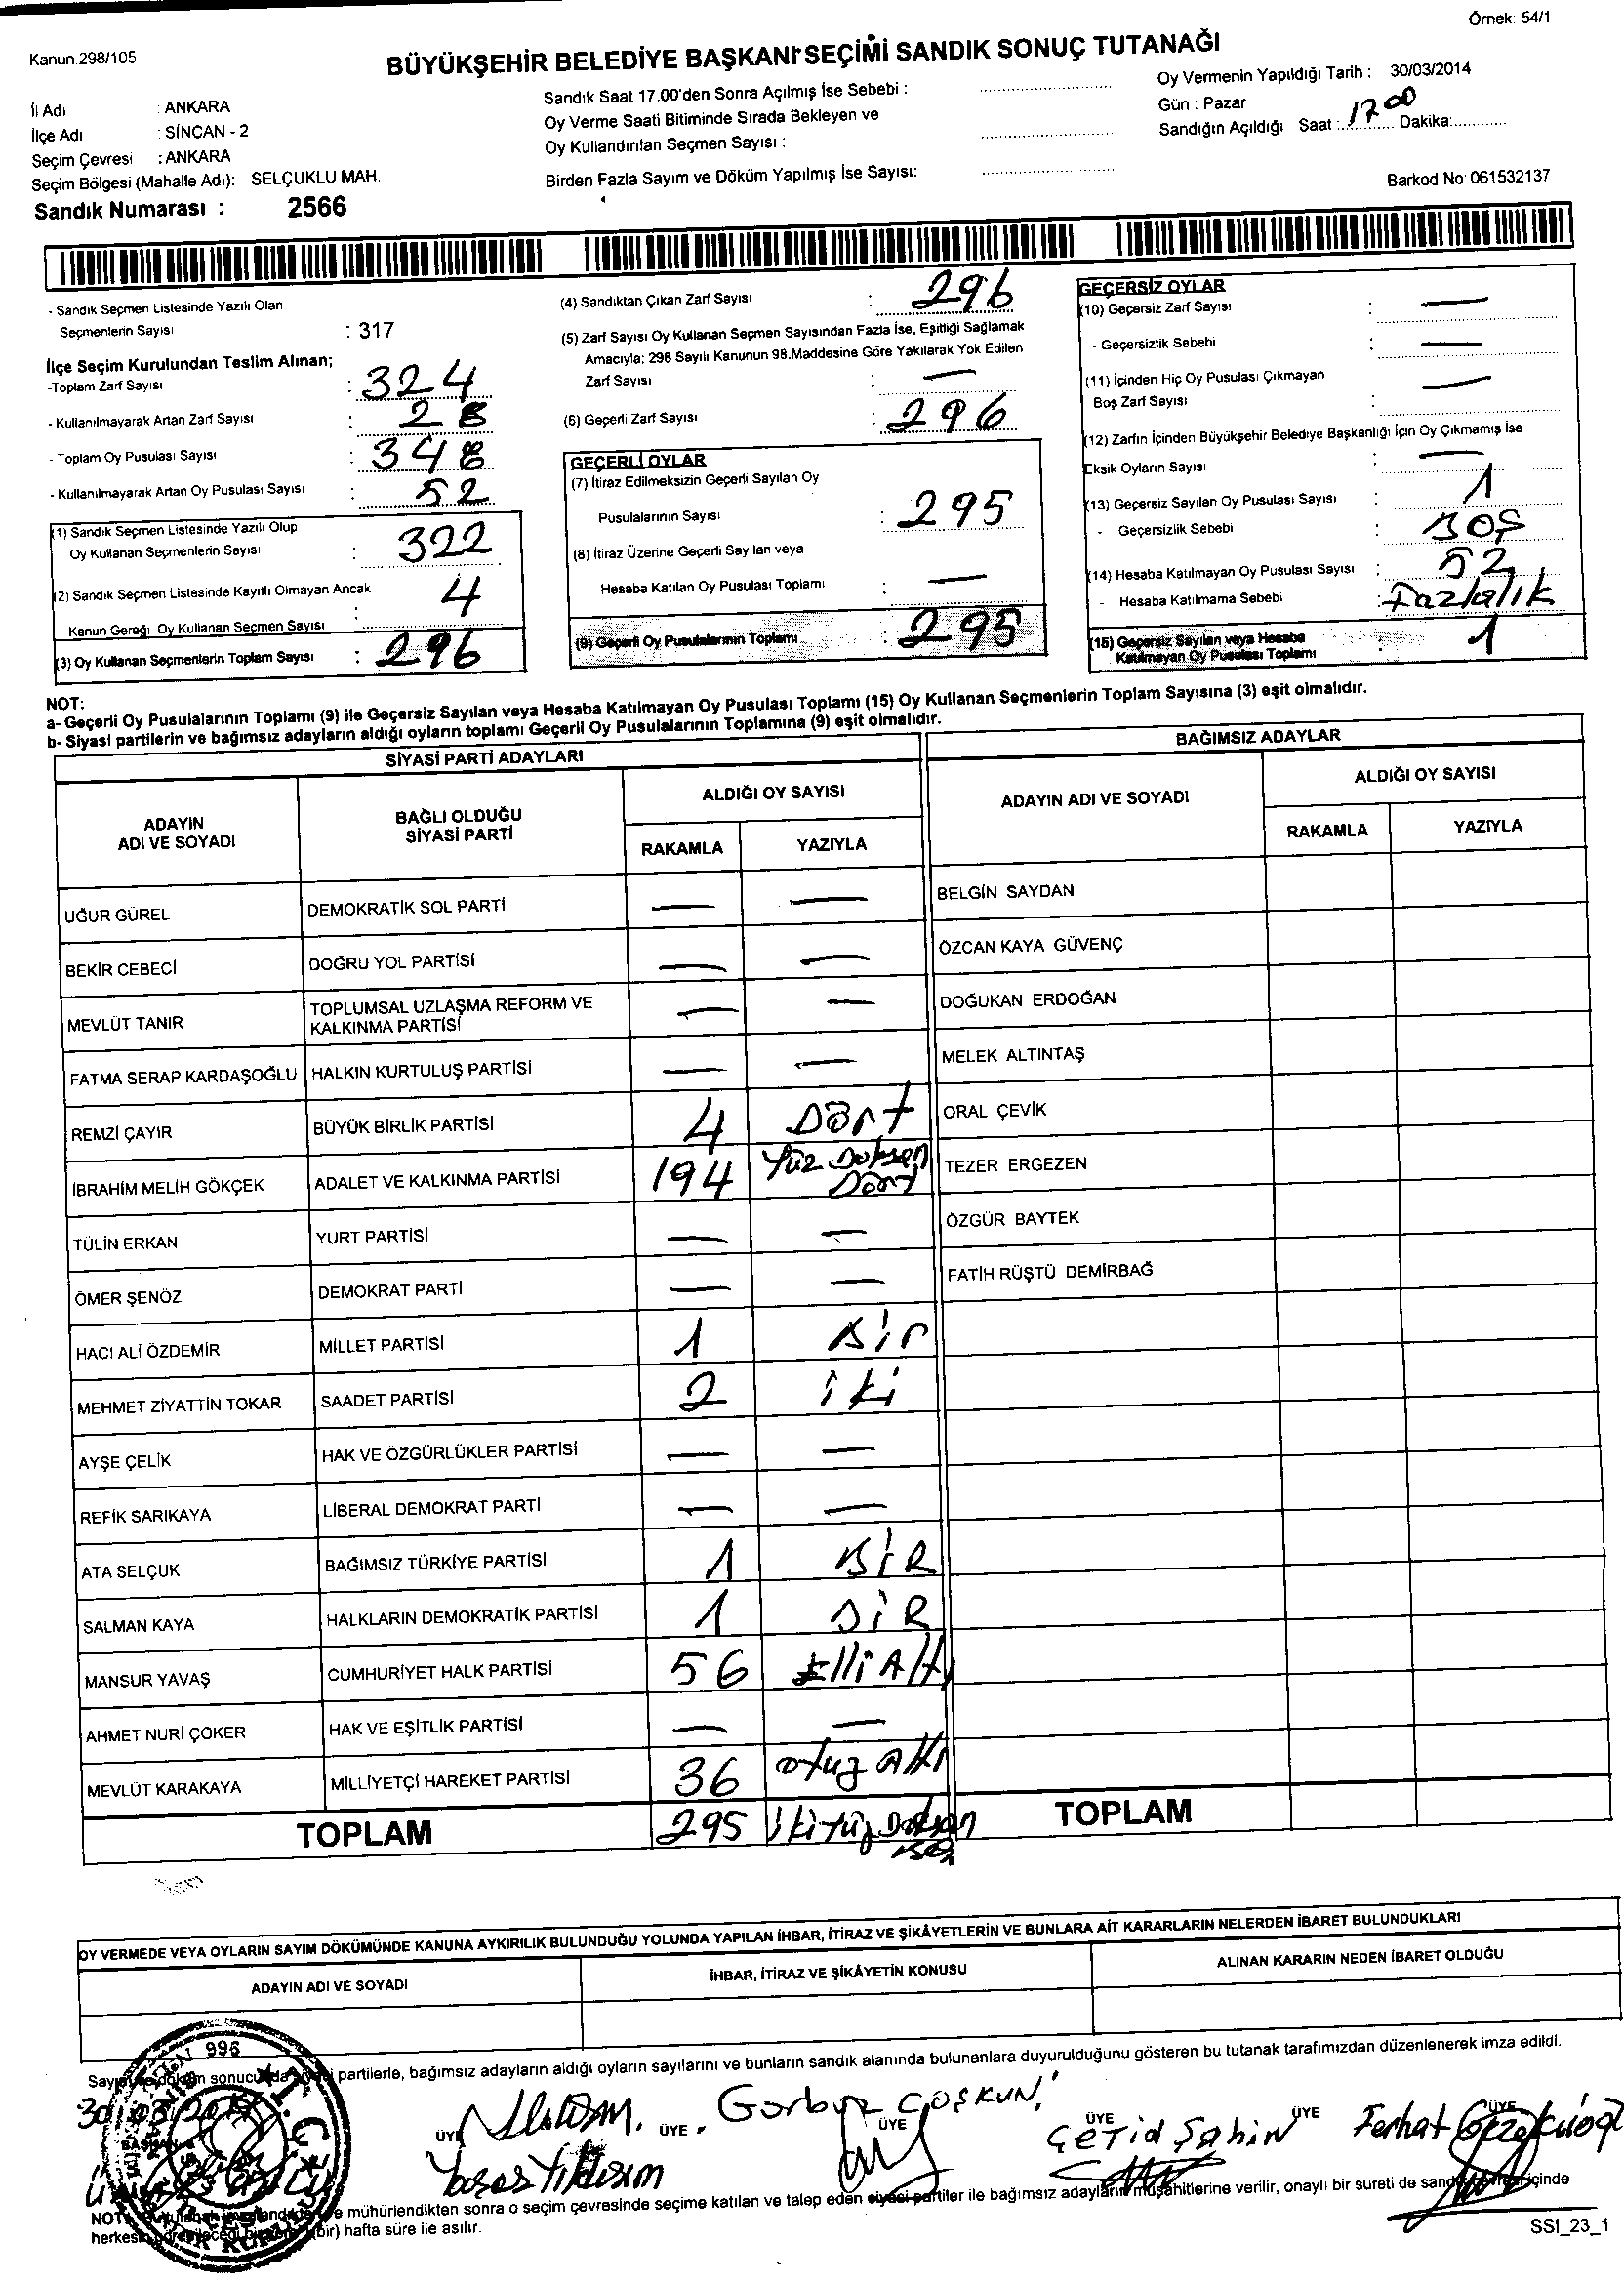 Örnek: 54/1
Kanun.298/105
BÜYÜKŞEHİR BELEDİYE BAŞKANI SEÇİMİ SANDIK SONUÇ TUTANAĞI
İl Adı : ANKARA
İlçe Adı : SİNCAN - 2
Seçim Çevresi : ANKARA
Seçim Bölgesi (Mahalle Adı): SELÇUKLU MAH.
Sandık Numarası : 2566
Sandık Saat 17.00'den Sonra Açılmış İse Sebebi :
Oy Verme Saati Bitiminde Sırada Bekleyen ve
Oy Kullandırılan Seçmen Sayısı :
Birden Fazla Sayım ve Döküm Yapılmış İse Sayısı:
Oy Vermenin Yapıldığı Tarih : 30/03/2014
Gün : Pazar
Sandığın Açıldığı Saat : 17 00 Dakika:
Barkod No: 061532137
- Sandık Seçmen Listesinde Yazılı Olan
Seçmenlerin Sayısı : 317
İlçe Seçim Kurulundan Teslim Alınan;
-Toplam Zarf Sayısı : 324
- Kullanılmayarak Artan Zarf Sayısı : 28
- Toplam Oy Pusulası Sayısı : 348
- Kullanılmayarak Artan Oy Pusulası Sayısı : 52
(1) Sandık Seçmen Listesinde Yazılı Olup
Oy Kullanan Seçmenlerin Sayısı : 322
(2) Sandık Seçmen Listesinde Kayıtlı Olmayan Ancak
Kanun Gereği Oy Kullanan Seçmen Sayısı : 4
(3) Oy Kullanan Seçmenlerin Toplam Sayısı : 296
(4) Sandıktan Çıkan Zarf Sayısı : 296
(5) Zarf Sayısı Oy Kullanan Seçmen Sayısından Fazla İse, Eşitliği Sağlamak
Amacıyla; 298 Sayılı Kanunun 98.Maddesine Göre Yakılarak Yok Edilen
Zarf Sayısı : —
(6) Geçerli Zarf Sayısı : 296
GEÇERLİ OYLAR
(7) İtiraz Edilmeksizin Geçerli Sayılan Oy
Pusulalarının Sayısı : 295
(8) İtiraz Üzerine Geçerli Sayılan veya
Hesaba Katılan Oy Pusulası Toplamı : —
(9) Geçerli Oy Pusulalarının Toplamı : 295
GEÇERSİZ OYLAR
(10) Geçersiz Zarf Sayısı : —
- Geçersizlik Sebebi : —
(11) İçinden Hiç Oy Pusulası Çıkmayan
Boş Zarf Sayısı : —
(12) Zarfın İçinden Büyükşehir Belediye Başkanlığı İçin Oy Çıkmamış İse
Eksik Oyların Sayısı : —
(13) Geçersiz Sayılan Oy Pusulası Sayısı : 1
- Geçersizlik Sebebi : BOŞ
(14) Hesaba Katılmayan Oy Pusulası Sayısı : 52
- Hesaba Katılmama Sebebi : Fazlalık
(15) Geçersiz Sayılan veya Hesaba
Katılmayan Oy Pusulası Toplamı : 1
NOT:
a- Geçerli Oy Pusulalarının Toplamı (9) ile Geçersiz Sayılan veya Hesaba Katılmayan Oy Pusulası Toplamı (15) Oy Kullanan Seçmenlerin Toplam Sayısına (3) eşit olmalıdır.
b- Siyasi partilerin ve bağımsız adayların aldığı oyların toplamı Geçerli Oy Pusulalarının Toplamına (9) eşit olmalıdır.
SİYASİ PARTİ ADAYLARI
ADAYIN ADI VE SOYADI BAĞLI OLDUĞU SİYASİ PARTİ ALDIĞI OY SAYISI
RAKAMLA YAZIYLA
UĞUR GÜREL DEMOKRATİK SOL PARTİ — —
BEKİR CEBECİ DOĞRU YOL PARTİSİ — —
MEVLÜT TANIR TOPLUMSAL UZLAŞMA REFORM VE KALKINMA PARTİSİ — —
FATMA SERAP KARDAŞOĞLU HALKIN KURTULUŞ PARTİSİ — —
REMZİ ÇAYIR BÜYÜK BİRLİK PARTİSİ 4 Dört
İBRAHİM MELİH GÖKÇEK ADALET VE KALKINMA PARTİSİ 194 Yüz Doksan Dört
TÜLİN ERKAN YURT PARTİSİ — —
ÖMER ŞENÖZ DEMOKRAT PARTİ — —
HACI ALİ ÖZDEMİR MİLLET PARTİSİ 1 Bir
MEHMET ZİYATTİN TOKAR SAADET PARTİSİ 2 iki
AYŞE ÇELİK HAK VE ÖZGÜRLÜKLER PARTİSİ — —
REFİK SARIKAYA LİBERAL DEMOKRAT PARTİ — —
ATA SELÇUK BAĞIMSIZ TÜRKİYE PARTİSİ 1 BİR
SALMAN KAYA HALKLARIN DEMOKRATİK PARTİSİ 1 BİR
MANSUR YAVAŞ CUMHURİYET HALK PARTİSİ 56 Elli Altı
AHMET NURİ ÇÖKER HAK VE EŞİTLİK PARTİSİ — —
MEVLÜT KARAKAYA MİLLİYETÇİ HAREKET PARTİSİ 36 otuz Altı
TOPLAM 295 İki Yüz Doksan Beş
BAĞIMSIZ ADAYLAR
ADAYIN ADI VE SOYADI ALDIĞI OY SAYISI
RAKAMLA YAZIYLA
BELGİN SAYDAN
ÖZCAN KAYA GÜVENÇ
DOĞUKAN ERDOĞAN
MELEK ALTINTAŞ
ORAL ÇEVİK
TEZER ERGEZEN
ÖZGÜR BAYTEK
FATİH RÜŞTÜ DEMİRBAĞ
TOPLAM
OY VERMEDE VEYA OYLARIN SAYIM DÖKÜMÜNDE KANUNA AYKIRILIK BULUNDUĞU YOLUNDA YAPILAN İHBAR, İTİRAZ VE ŞİKÂYETLERİN VE BUNLARA AİT KARARLARIN NELERDEN İBARET BULUNDUKLARI
ADAYIN ADI VE SOYADI İHBAR, İTİRAZ VE ŞİKÂYETİN KONUSU ALINAN KARARIN NEDEN İBARET OLDUĞU
996
T.C.
partilerle, bağımsız adayların aldığı oyların sayılarını ve bunların sandık alanında bulunanlara duyurulduğunu gösteren bu tutanak tarafımızdan düzenlenerek imza edildi.
BAŞKAN ÜYE ÜYE ÜYE ÜYE ÜYE ÜYE
COŞKUN
Çetin Şahin
Ferhat
Yaşar Yıldırım
mühürlendikten sonra o seçim çevresinde seçime katılan ve talep eden siyasi partiler ile bağımsız adayların müşahitlerine verilir, onaylı bir sureti de
(bir) hafta süre ile asılır.
SSI_23_1